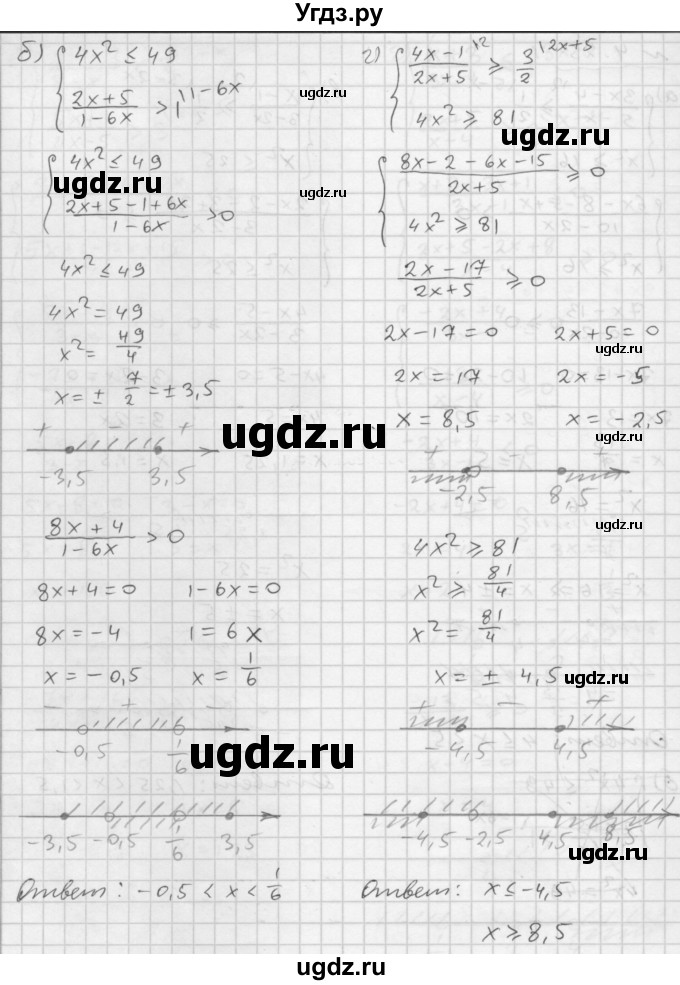 Угдз.ру
б) { 4x² ≤ 49
(2x+5)/(1-6x) > 1 |1-6x
ugdz.ru
{ 4x² ≤ 49
ugdz.ru
(2x+5-1+6x)/(1-6x) > 0
4x² ≤ 49
4x² = 49
x² = 49/4
x = ± 7/2 = ± 3,5
+ - +
-3,5 3,5
(8x+4)/(1-6x) > 0
8x+4=0 1-6x=0
8x=-4 1=6x
x=-0,5 x=1/6
- + -
-0,5 1/6
-3,5 -0,5 1/6 3,5
Ответ: -0,5 < x < 1/6
г) { (4x-1)/(2x+5) |2 ≥ 3/2 |2x+5
ugdz.ru
4x² ≥ 81
ugdz.ru
{ (8x-2-6x-15)/(2x+5) ≥ 0
ugdz.ru
4x² ≥ 81
(2x-17)/(2x+5) ≥ 0
2x-17=0 2x+5=0
ugdz.ru
2x=17 2x=-5
x=8,5 x=-2,5
ugdz.ru
+ +
-2,5 8,5
ugdz.ru
4x² ≥ 81
x² ≥ 81/4
x² = 81/4
x = ± 4,5
ugdz.ru
+ - -
-4,5 4,5
ugdz.ru
-4,5 -2,5 4,5 8,5
ugdz.ru
Ответ: x ≤ -4,5
x ≥ 8,5
ugdz.ru